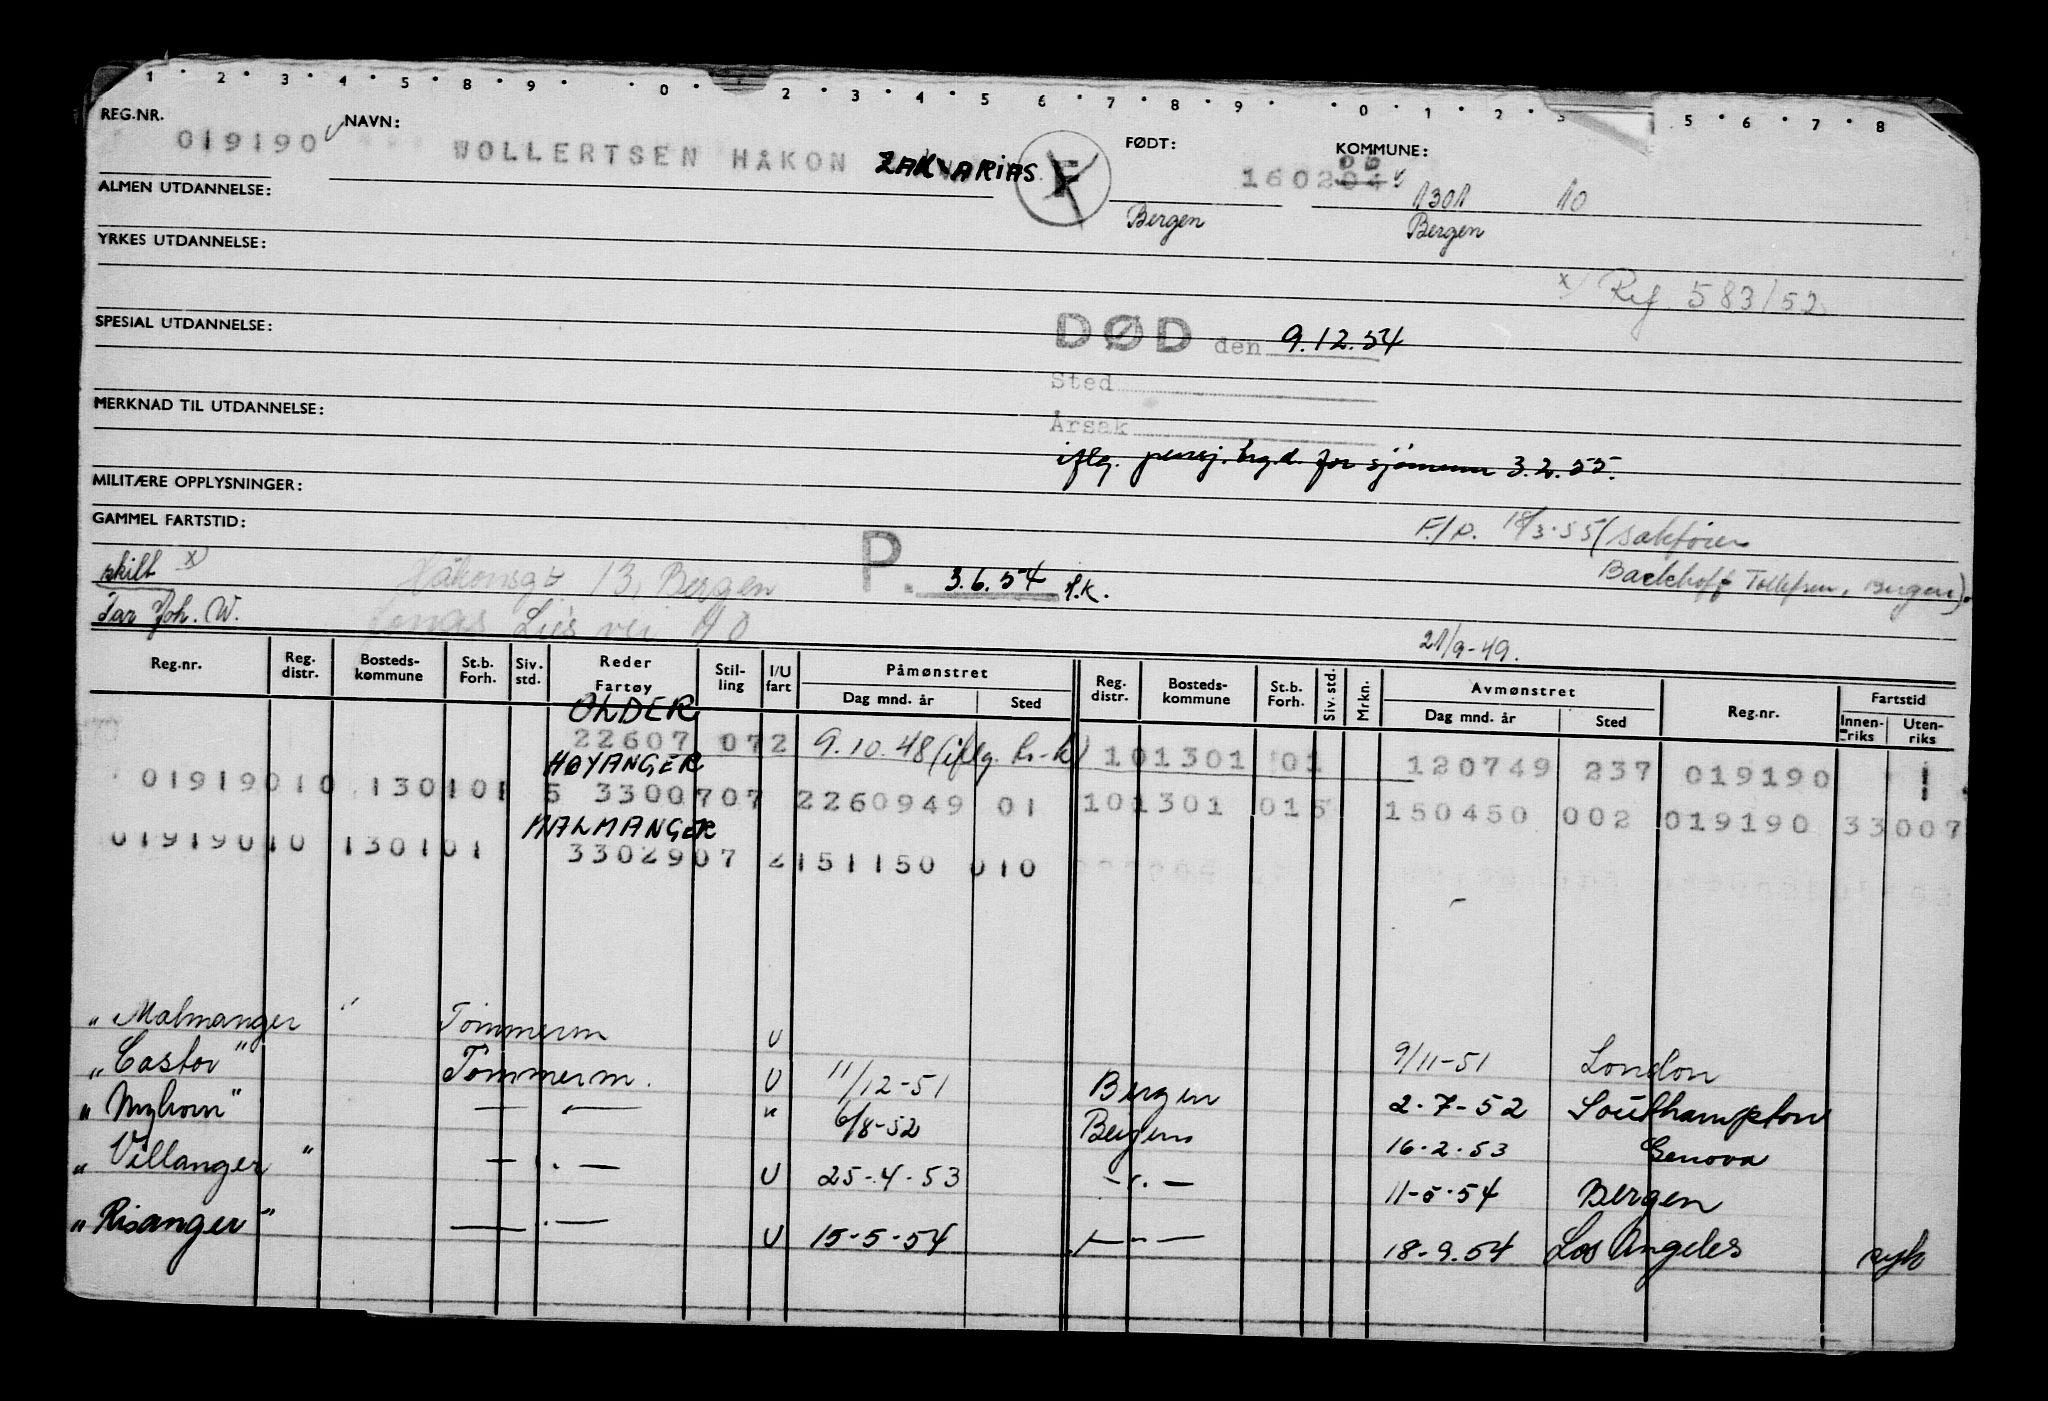 1 2 3 4 5 8 9 0 2 3 4 5 6 7 8 9 0 1 2 3 5 6 7 8
REG.NR. NAVN: FØDT: KOMMUNE:
019190 WOLLERTSEN HÅKON ZAKARIAS F 160204 06 1301 10
ALMEN UTDANNELSE: Bergen Bergen
YRKES UTDANNELSE:
x) Ref 583/52
SPESIAL UTDANNELSE:
DØD den 9.12.54
Sted
MERKNAD TIL UTDANNELSE:
Årsak
iflg. pensj. trygd. for sjömenn 3.2.55.
MILITÆRE OPPLYSNINGER:
GAMMEL FARTSTID: F/P. 18/3-55 (sakförer
skilt x) Håkonsgt 13, Bergen P. 3.6.54 f.k. Backhoff Tollefsen, Bergen).
Far Joh. W. Jonas Lies vei 40
21/9-49.
Reg.nr. Reg. distr. Bosteds- kommune St.b. Forh. Siv. std. Reder Fartøy Stil- ling I/U fart Påmønstret Dag mnd. år Sted Reg. distr. Bosteds- kommune St.b. Forh. Siv. std. Mrkn. Avmønstret Dag mnd. år Sted Reg.nr. Fartstid Innen- riks Uten- riks
OLDER
22607 072 9.10.48 (iflg. h-k) 101301 01 120749 237 019190 1
HØYANGER
019190 10 130101 5 3300707 2260949 01 101301 015 150450 002 019190 33007
MALMANGER
019190 10 130101 3302907 2151150 010
"Malmanger" Tömmerm U 9/11-51 London
"Castor" Tömmerm. U 11/12-51 Bergen 2-7-52 Southampton
"Myhorn" — — " 6/8-52 Bergen 16-2-53 Genova
"Villanger" — " — U 25-4-53 — " — 11-5-54 Bergen
"Risanger" — " — U 15-5-54 — " — 18-9.54 Los Angeles syk